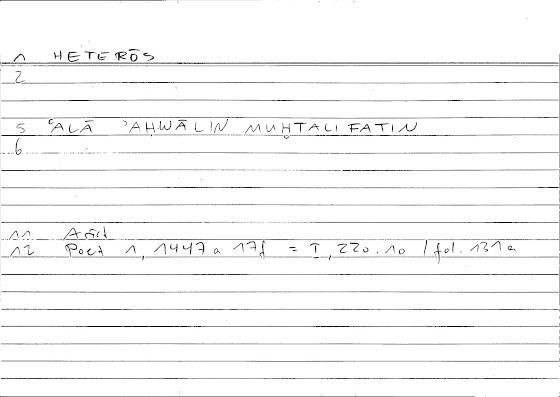 1 HETERŌS
2
5 ʿALĀ ʾAḤWĀLIN MUḪTALIFATIN
6
11 Arist
12 Poet 1, 1447a 17f = I, 220.10 / fol. 131a